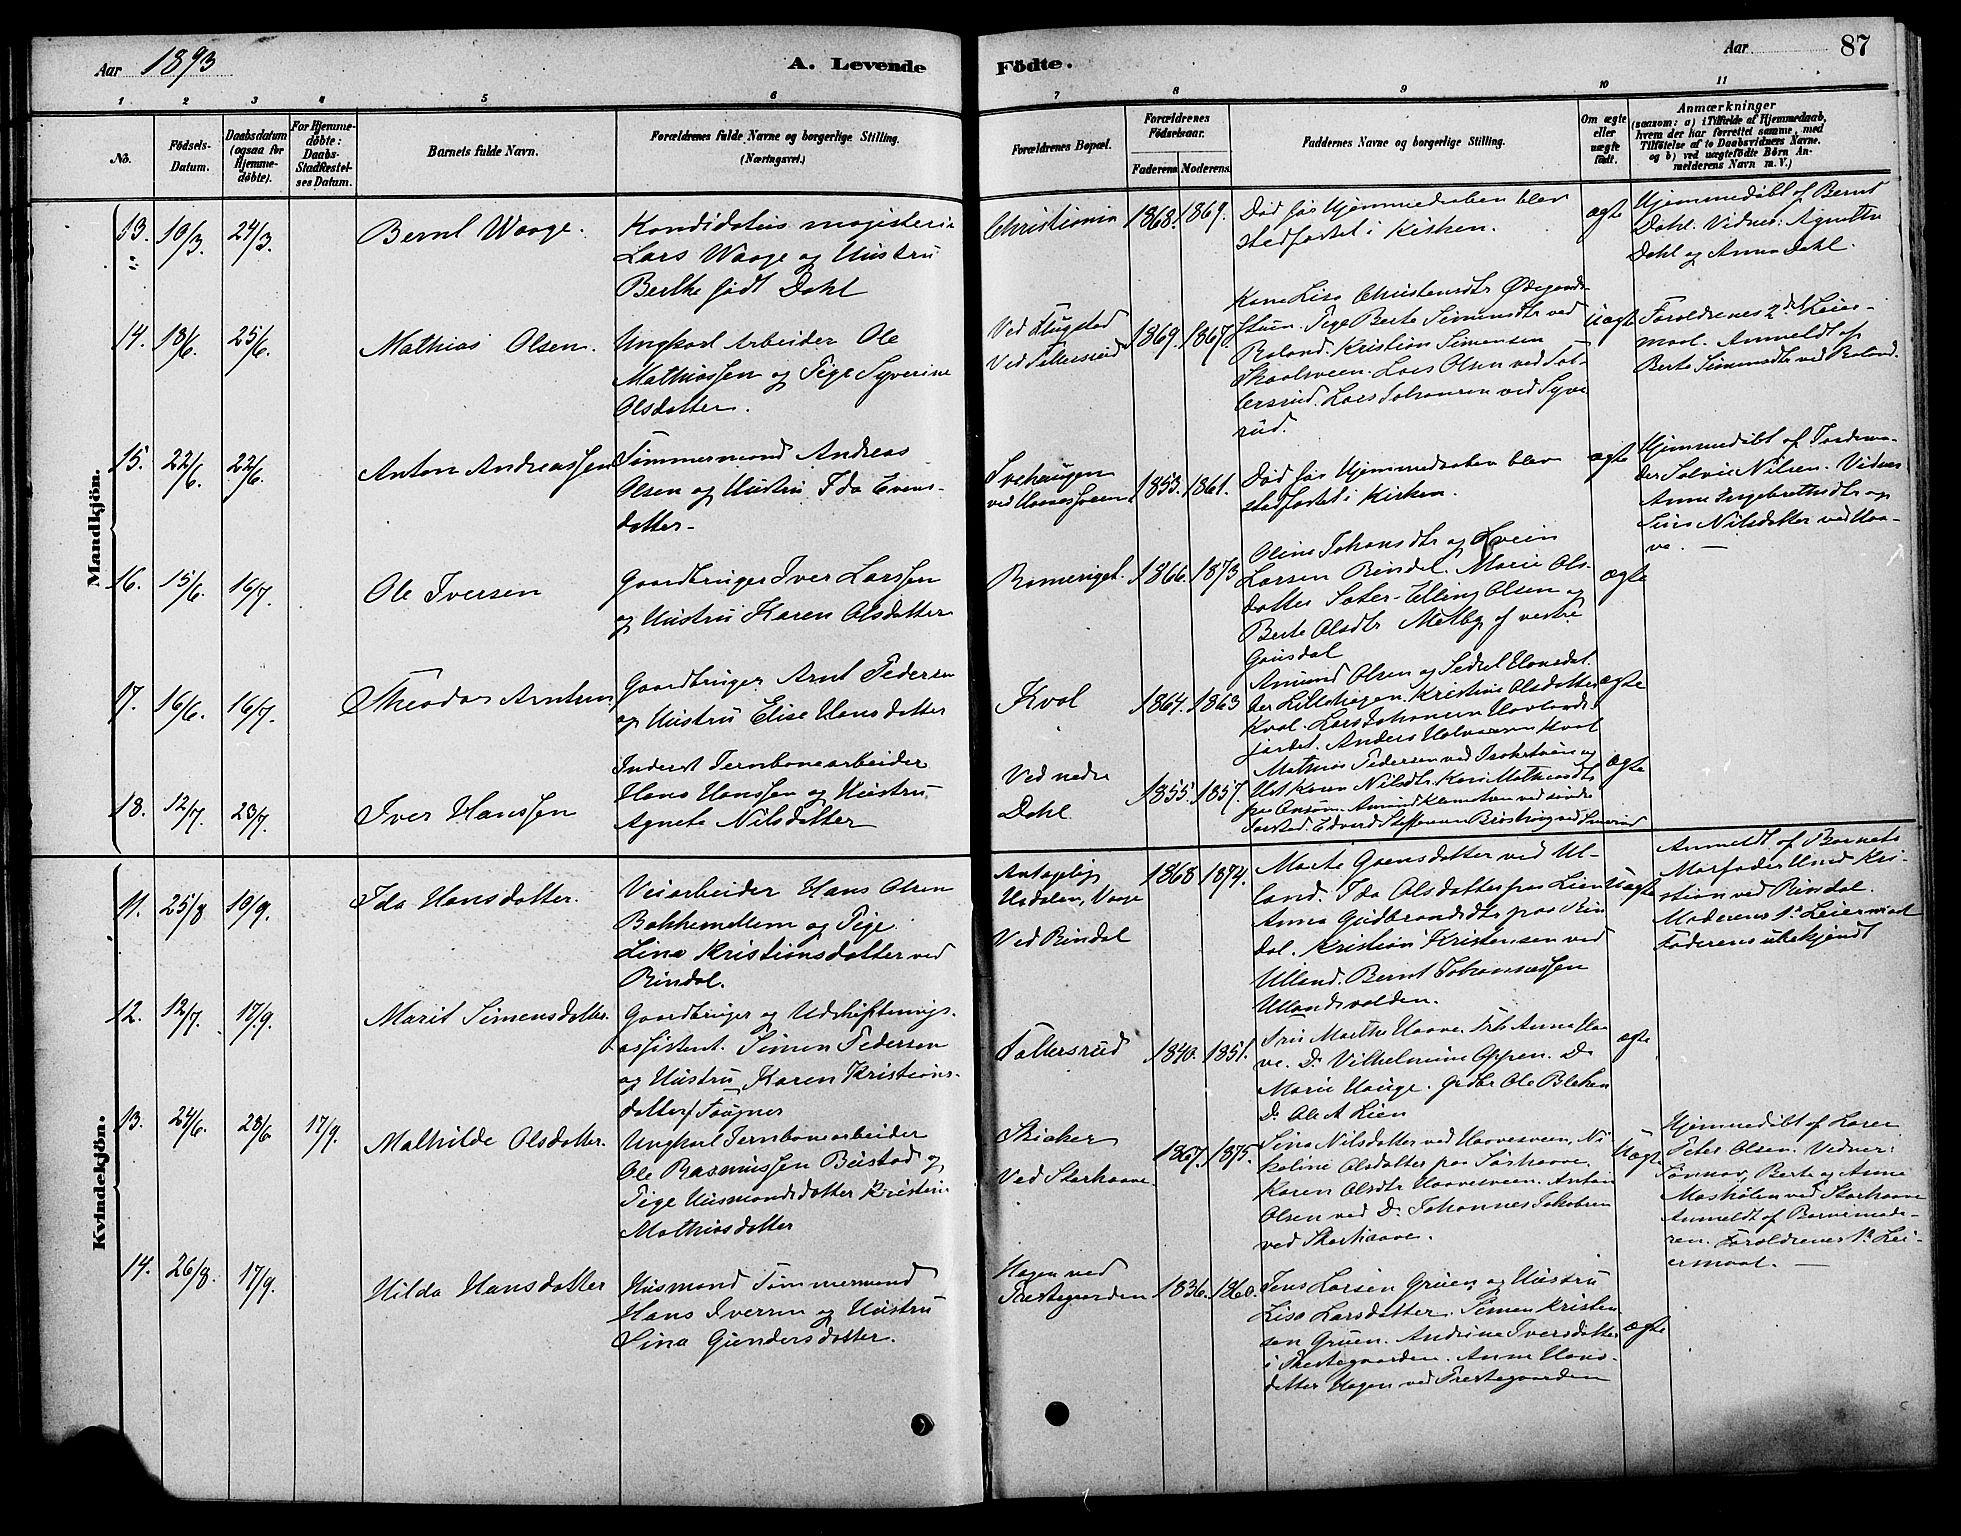 Aar 1893
A. Levende
Fødte.
Aar
87
1
2
3
4
5
6
7
8
9
10
11
No.
Fødsels-
Datum.
Daabsdatum
(ogsaa for
Hjemme-
døbte).
For Hjemme-
døbte:
Daabs-
Stadfæstel-
ses Datum.
Barnets fulde Navn.
Forældrenes fulde Navne og borgerlige Stilling.
(Næringsvei.)
Forældrenes Bopæl.
Forældrenes
Fødselsaar.
Faderens
Moderens.
Faddernes Navne og borgerlige Stilling.
Om ægte
eller
uægte
født.
Anmærkninger
(saasom: a) i Tilfælde af Hjemmedaab,
hvem der har forrettet samme, med
Tilføielse af to Daabsvidners Navne.
og b) ved uægtefødte Børn An-
melderens Navn m. V.)
Mandkjön.
13.
19/3.
24/3.
Bernt Waage.
Kandidatus magisterie
Lars Waage og Hustru
Berthe født Dahl
Christiania
1868.
1869.
Død før Hjemmedaaben blev
stadfæstet i Kirken.
ægte
Hjemmedøbt af Bernt
Dahl. Vidner: Agnethe
Dahl og Anna Dahl.
14.
18/6.
25/6.
Mathias Olsen.
Ungkarl Arbeider Ole
Mathiassen og Pige Syverine
Olsdatter.
Ved Flugstad
1869.
1867.
Kone Lisa Christensdtr Ødegaard-
stuen. Pige Berte Simensdtr ved
Roland. Kristian Simensen
Skaalsveen. Lars Olsen ved Tol-
lersrud. Lars Johansen ved Syve
rud.
Uægte
Forældrenes 2det Leier-
maal. Anmeldt af
Berte Simensdtr ved Roland.
15.
22/6.
22/6.
Anton Andreassen
Tømmermand Andreas
Olsen og Hustru Ida Evens-
datter.
1853.
1861.
Død før Hjemmedaaben blev
stadfæstet i Kirken.
ægte
Hjemmedøbt af Jordemo-
der Nilsen. Vidner
Anne Ingebrethsdtr og
Nilsdatter ved Haa-
ve.
16.
15/6.
16/7.
Ole Iversen
Gaardbruger Iver Larssen
og Hustru Karen Olsdatter
Romeriget.
1866.
1873
Oline Johansdtr og Svein
Larsen Rindal. Marie Ols-
datter Elling Olsen og
Berte Olsdtr Melby af vestre
Gausdal
ægte
17.
16/6.
16/7.
Theodor Arntsen
Gaardbruger Arnt Pedersen
og Hustru Elise Hansdatter
Kval
1864.
1863
Amund Olsen og Sidsel Hansdat-
ter Lillehagen. Kristine Olsdatter
Kval. Lars Johansen
Anders Halvorsen Kval
ægte
18.
12/7.
23/7.
Iver Hanssen
Inderst Jernbanearbeider
Hans Hanssen og Hustru
Agnete Nilsdatter
Ved nedre
Dahl
1855.
1857.
Mathias Pedersen ved
Karen Nilsdtr. Kari Mathiasdtr
ægte
Kvindekjön.
11.
25/8
10/9.
Ida Hansdatter.
Veiarbeider Hans Olsen
Bakkemellem og Pige
Lina Kristiansdatter ved
Rindal.
Vaage
Ved Rindal
1868
1874.
Marte Gaensdatter ved Ul-
land. Ida Olsdatter paa Lien
Anna Gudbrandsdtr paa Rin
dal. Kristian Kristensen ved
Ulland. Bernt Johannessen
Ullandsvolden.
Uægte
Anmeldt af Barnets
Morfader Kri-
stian ved Rindal.
Moderens 1ste Leiermaal
Faderens ubekjendt
12.
12/7.
17/9.
Marit Simensdatter.
Gaardbruger og Udskiftnings-
assistent. Simen Pedersen
og Hustru Karen Kristians-
datter f. Fougner
Tollersrud
1840.
1851.
Fru Marthe Haave. Frk Anna Haa
ve. Do Vilhelmine Oppen. Do
Marie Hauge. Grdbr Ole Bleken
Do Ole A Lien
ægte
13.
24/6.
28/6
17/9.
Mathilde Olsdatter.
Ungkarl Jernbanearbeider
Ole Rasmussen Bustad og
Pige Husmandsdatter Kristine
Mathiasdatter
Skiaker
Ved Storhaave.
1867.
1875.
Lina Nilsdatter ved Haavesveen, Ni
koline Olsdatter paa Sørhaave.
Karen Olsdtr Haavesveen. Anton
Olsen ved Do. Johannes Jakobsen
ved Storhaave.
Uægte
Hjemmedøbt af Lærer
Peter Olsen. Vidner:
Jørmor, Berte og Anne
Mosholen ved Storhaave
Anmeldt af Barnemode-
ren. Forældrenes 1ste Lei-
ermaal.
14.
26/8.
17/9.
Hilda Hansdatter
Husmand Tømmermand
Hans Iversen og Hustru
Lina Gundersdatter.
Hagen ved
Prestegaarden
1836.
1860.
Jens Larsen Gruen og Hustru
Lisa Larsdatter. Simen Kristen
sen Gruen. Andrine Iversdatter
i Prestegaarden. Anne Hans-
datter Hagen ved Prestegaarden
ægte